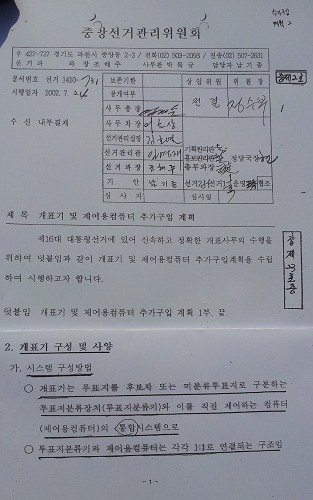 중앙선거관리위원회
우 427-727 경기도 과천시 중앙동 2-3 / 전화(02) 503-2093 / 전송(02) 507-2631
선거과 과장 조해주 사무관 박륙규 담당자 남기홍
문서번호 선거 1410-
시행일자 2002. 7. 24
수 신 내부결재
보존기한
공개여부
사무총장
사무차장
선거관리실장
선거관리관
선거과장
기 안
심사자
상임위원 위원장
전결
기획관리관
홍보관리관
총무과장
정당국장
심사일
협조
제 목 개표기 및 제어용컴퓨터 추가구입 계획
제16대 대통령선거에 있어 신속하고 정확한 개표사무의 수행을
위하여 덧붙임과 같이 개표기 및 제어용컴퓨터 추가구입계획을 수립
하여 시행하고자 합니다.
덧붙임 개표기 및 제어용컴퓨터 추가구입 계획 1부. 끝.
2. 개표기 구성 및 사양
가. 시스템 구성방법
○ 개표기는 투표지를 후보자 또는 미분류투표지로 구분하는
투표지분류장치(투표지분류기)와 이를 직접 제어하는 컴퓨터
(제어용컴퓨터)의 통합시스템으로
○ 투표지분류기와 제어용컴퓨터는 각각 1:1로 연결되는 구조임
- 1 -